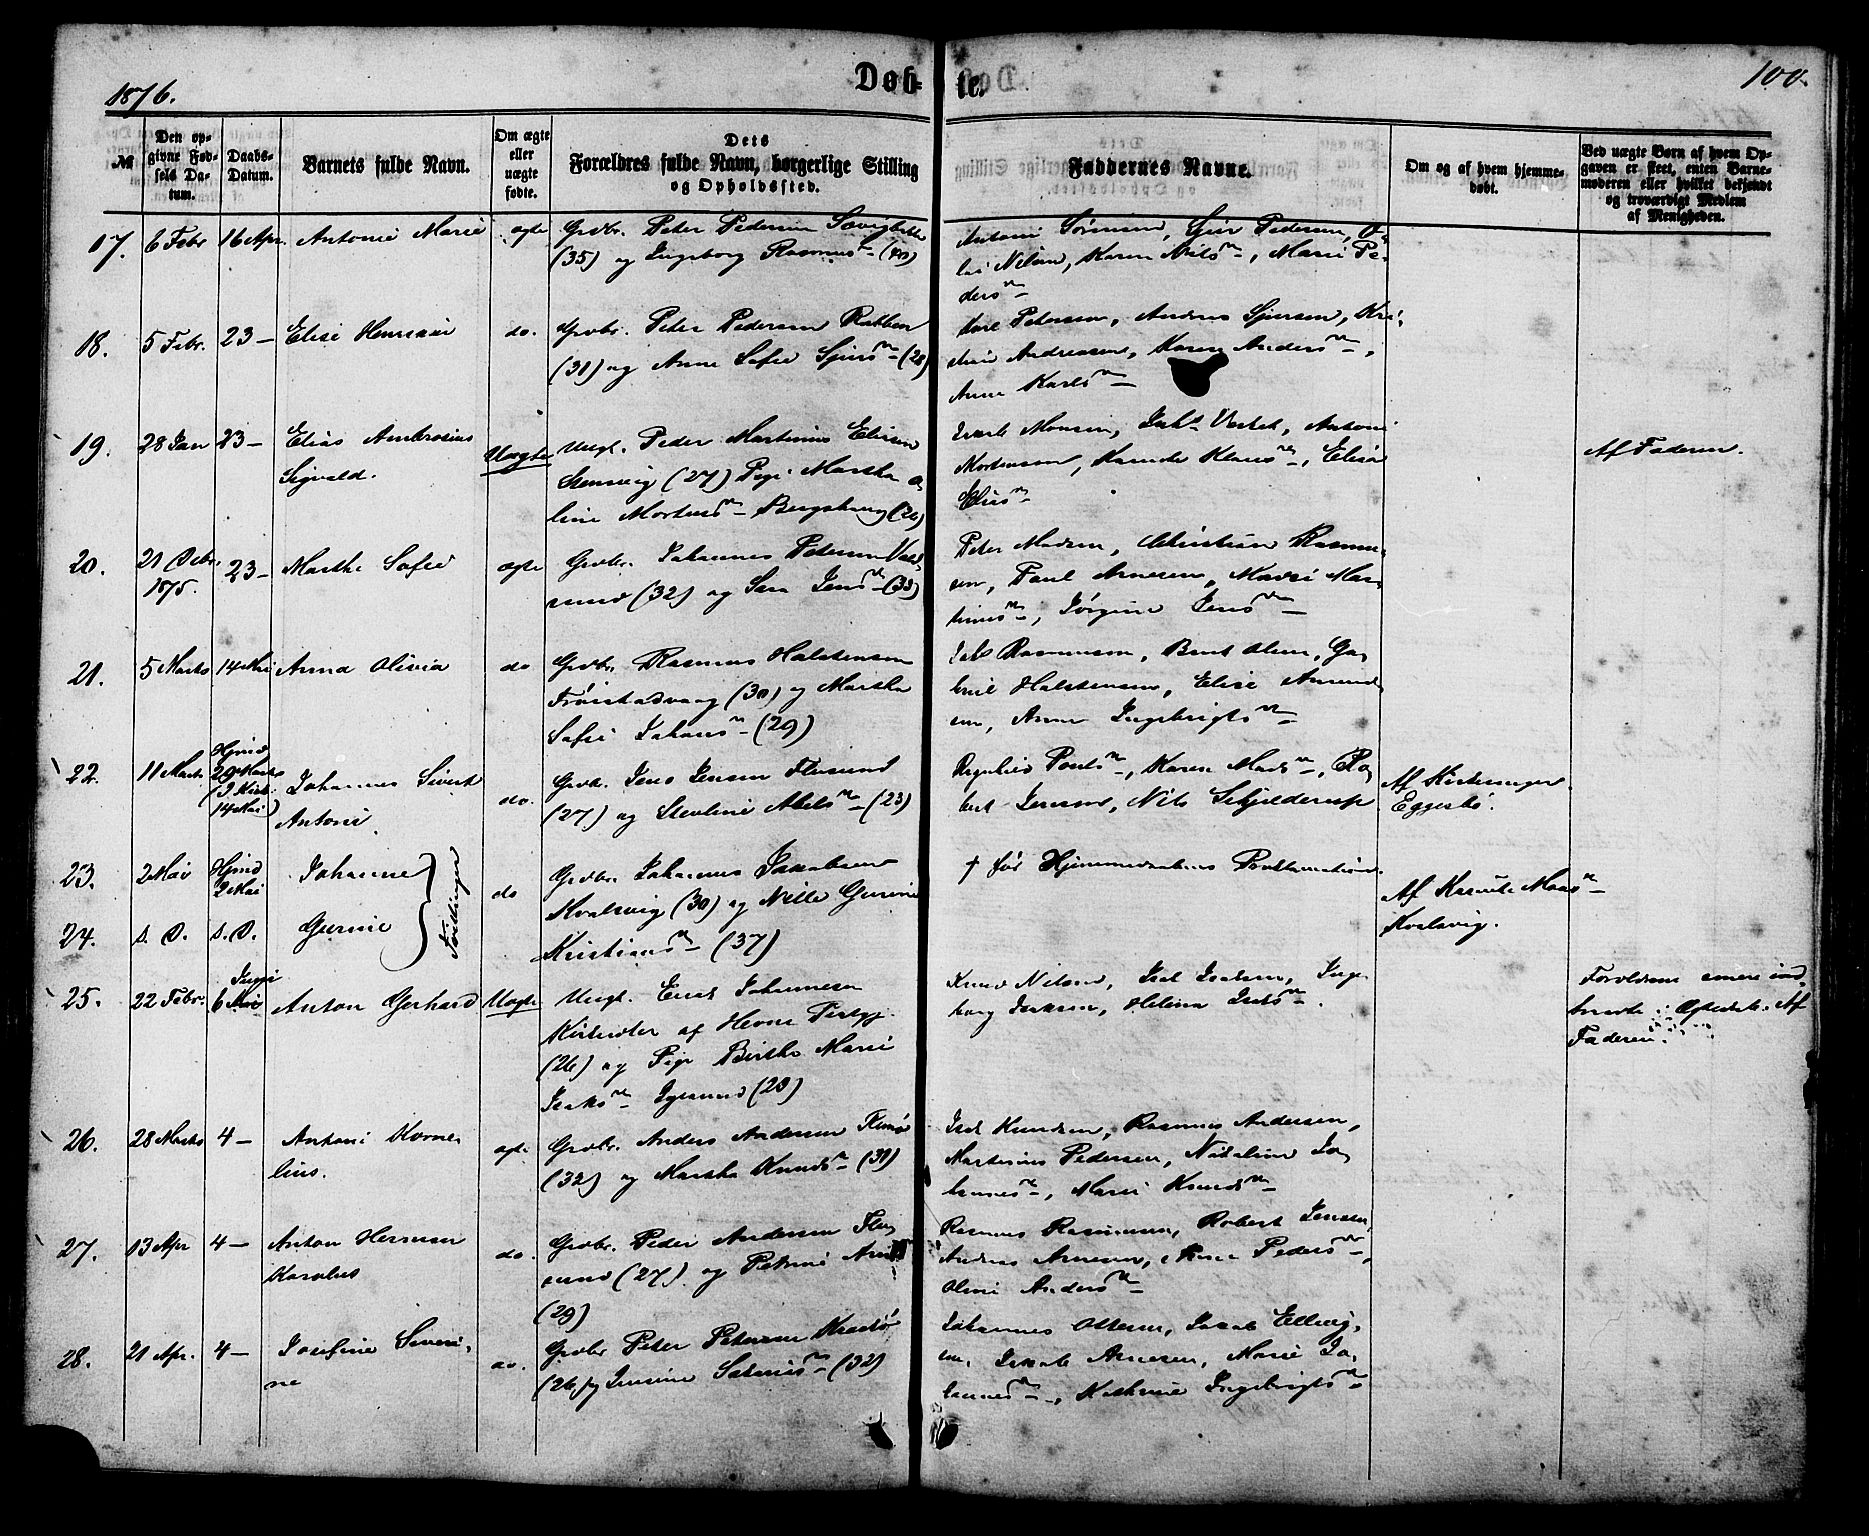 1876.
Døb-
te.
100.
№
Den op-
givne Fød-
sels Da-
tum.
Daabs-
Datum.
Barnets fulde Navn.
Om ægte
eller
uægte
fødte.
Dets
Forældres fulde Navn, borgerlige Stilling
og Opholdssted.
Faddernes Navne.
Om og af hvem hjemme-
døbt.
Ved uægte Børn af hvem Op-
gaven er skeet, enten Barne-
moderen eller hvilket bekjendt
og troværdigt Medlem
af Menigheden.
17. 6 Febr 16 Apr. Antonie Marie ægte Grdbr. Peter Pedersen
(35) og Ingeborg Rasmusd (40)
Antoni Sørensen, Sjur Pedersen, O-
lai Nilsen, Karen Nilsd, Marie Pe-
dersd
18. 5 Febr. 23 — Elise Henriane do. Grdbr. Peter Pedersen
(31) og Anne Sofie Sjursd (28)
Karl Petersen, Andreas Sjursen, Kri-
stian Andreassen, Karen Andersd,
Anne Karlsd
19. 28 Jan 23 — Elias Ambrosius
Sigvald.
Uægte Ungk. Peder Martinus Eliesen
(27) Pige Martha O-
line Mortensd
Monsen, Antoni
Mortensen, Klausd, Elisa
Eliesd
Af Faderen.
20. 21 Decbr.
1875.
23 — Marthe Sofie ægte Grdbr. Johannes Petersen
(32) og Sara Jensd (33)
Peter Madsen, Christian Rasmus-
sen, Paul Arnesen, Marie Mar-
tinusd, Jørgine Jensd
21. 5 Marts 14 Mai Anna Olivia do Grdbr. Rasmus Halstensen
Frøistadvaag (30) og Martha
Sofie Johansd (29)
Rasmussen, Bernt Olsen, Ga-
briel Halstensen, Elise Amund-
sen, Anne Ingebrigtsd
22. 11 Marts Hjmd
29 Marts
(I Kirk.
14 Mai)
Johannes Sivert
Antoni.
do. Grdb. Jens Jensen Flusund
(27) og Stevline Abelsd (23)
Regulie Paulsd, Karen Madsd, Ro-
bert Jensen, Nils Schjelderup
Af Kirkesanger
Eggesbø.
23. 2 Mai Hjmd
2 Mai
Johanne
24. s. D. s. D. Gurine
Tvillinger
do Grdbr. Johannes Jakobsen
Kvalsvig (30) og Nille Gurine
Kristiansd (37)
† før Hjemmedaabens Proklamation.
Af Karnute Maasd
Kvalsvig.
25. 22 Febr. 6 Mai Anton Gerhard Uægte Ungk. Enok Johannesen
af Herrø Prstgj.
(26) og Pige Birthe Marie
Isaksd Igesund (28)
Knud Nilsen, Isak Isaksen, Inge-
borg Isaksen, Helena Isaksd.
Forældrene senere ind-
traadte i Ægteskab. Af
Faderen.
26. 28 Marts 4 — Antoni Korne-
lius.
ægte Grdbr. Anders Andersen Remø
(32) og Martha Knudsd (31)
Isak Knudsen, Rasmus Andersen,
Martinus Pedersen, Nikoline Jo-
hannesd, Marie Knudsd
27. 13 Apr 4 — Anton Herman
Karolus
do. Grdbr. Peder Andersen Flu-
sund (27) og Petrine
(29)
Rasmus Rasmussen, Robert Jensen,
Andreas Arnesen, Anne Pedersd,
Oline Andersd
28. 21 Apr. 4 — Josefine Severi-
ne
do. Grdbr Peter Petersen
(26) og Jensine (32)
Johannes Ottesen, Jakob Elling-
sen, Jakob Arnesen, Marie Jo-
hannesd, Kathrine Ingebrigtsd